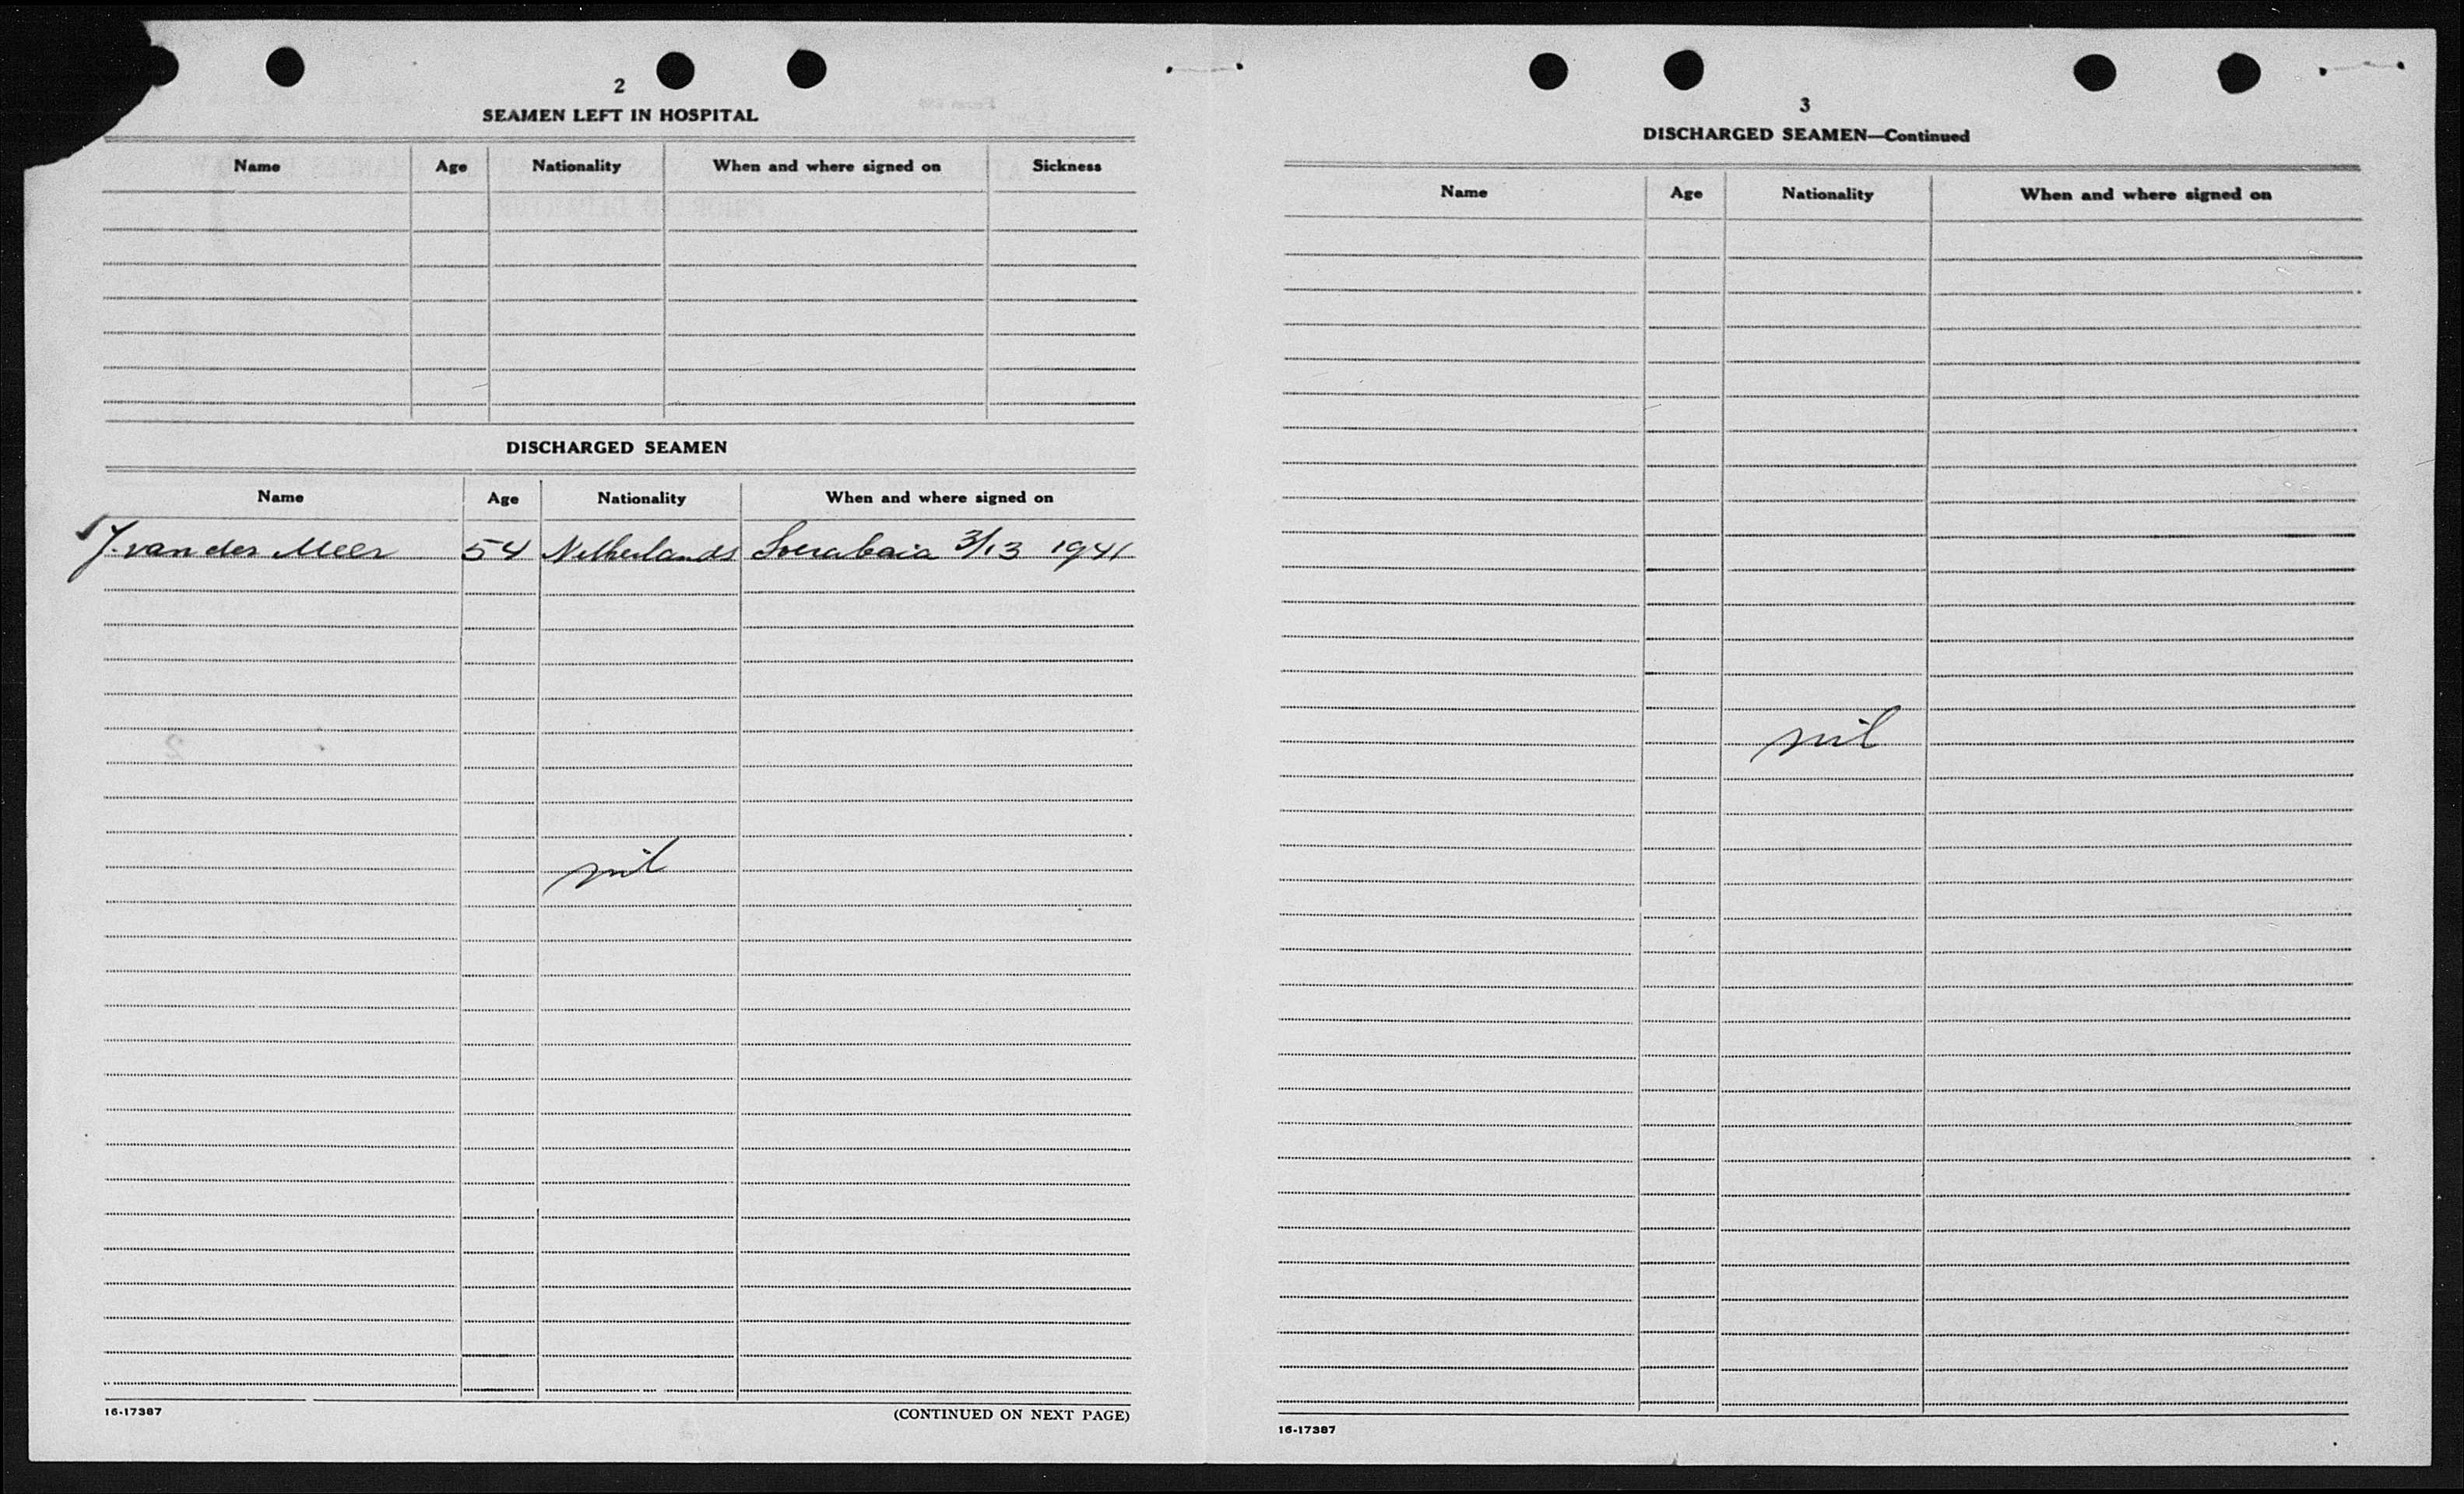 2
SEAMEN LEFT IN HOSPITAL
Name Age Nationality When and where signed on Sickness
DISCHARGED SEAMEN
Name Age Nationality When and where signed on
J. van der Meer 54 Netherlands Soerabaia 3/13 1941
nil
16-17387 (CONTINUED ON NEXT PAGE)
3
DISCHARGED SEAMEN—Continued
Name Age Nationality When and where signed on
nil
16-17387